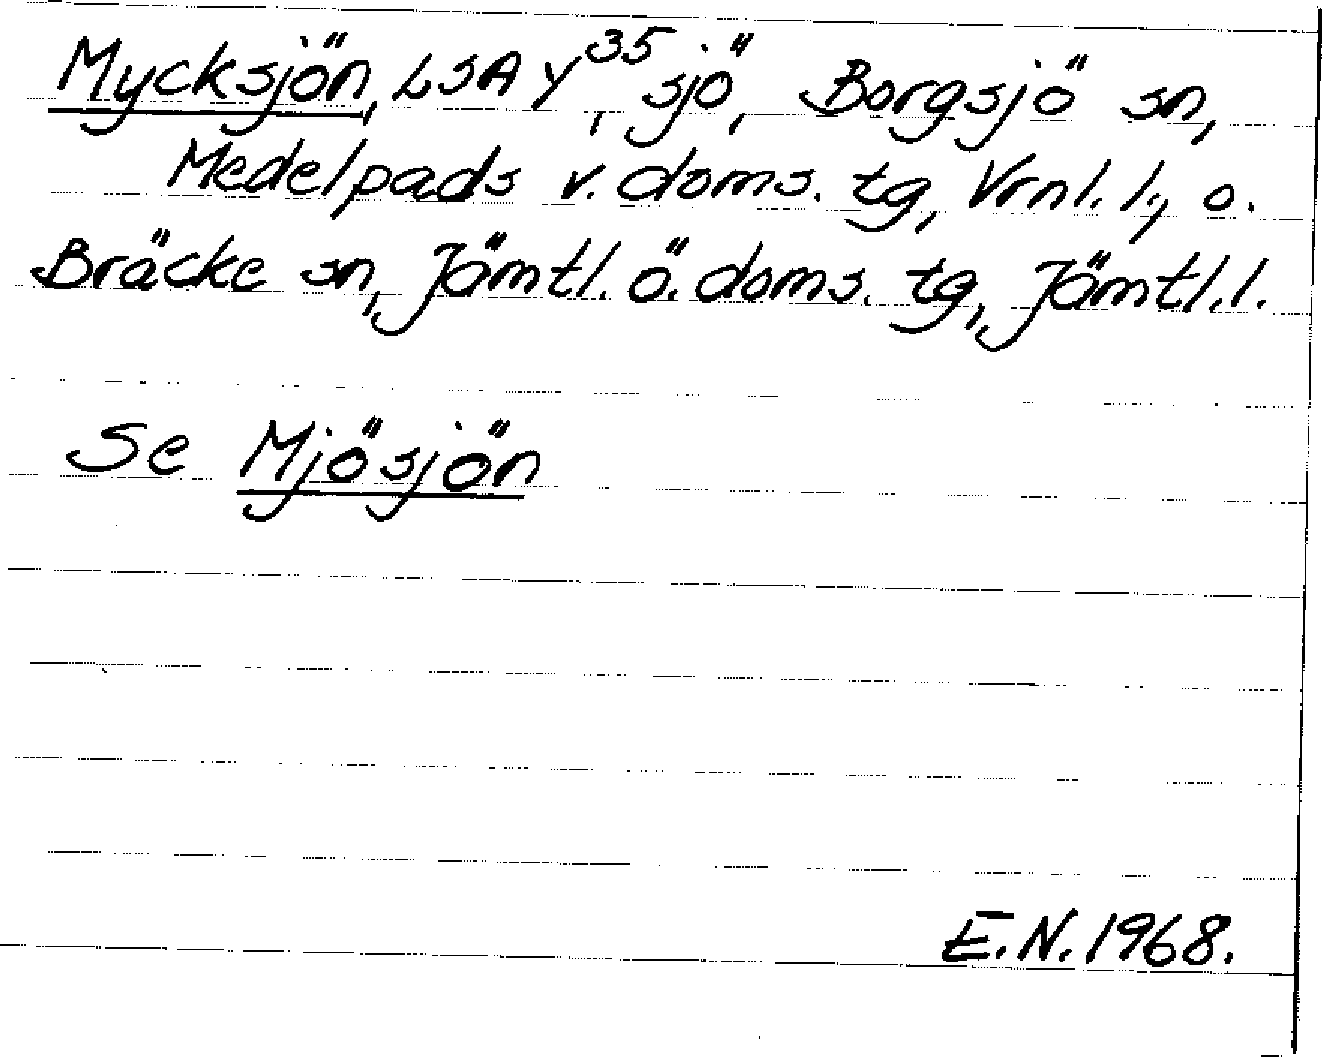 Mycksjön, LSA Y³⁵, sjö, Borgsjö sn,
Medelpads v. doms. tg, Vrnl. l., o.
Bräcke sn, Jämtl. ö. doms. tg, Jämtl. l.
Se Mjösjön
E.N. 1968.